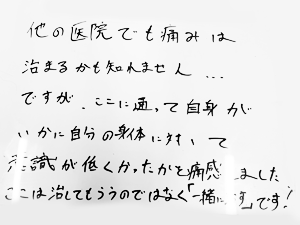 他の医院でも痛みは
治まるかも知れません...
ですが、ここに通って自身が
いかに自分の身体に対して
意識が低くかったかを痛感しました
ここは治してもらうのではなく「一緒に治す」です!